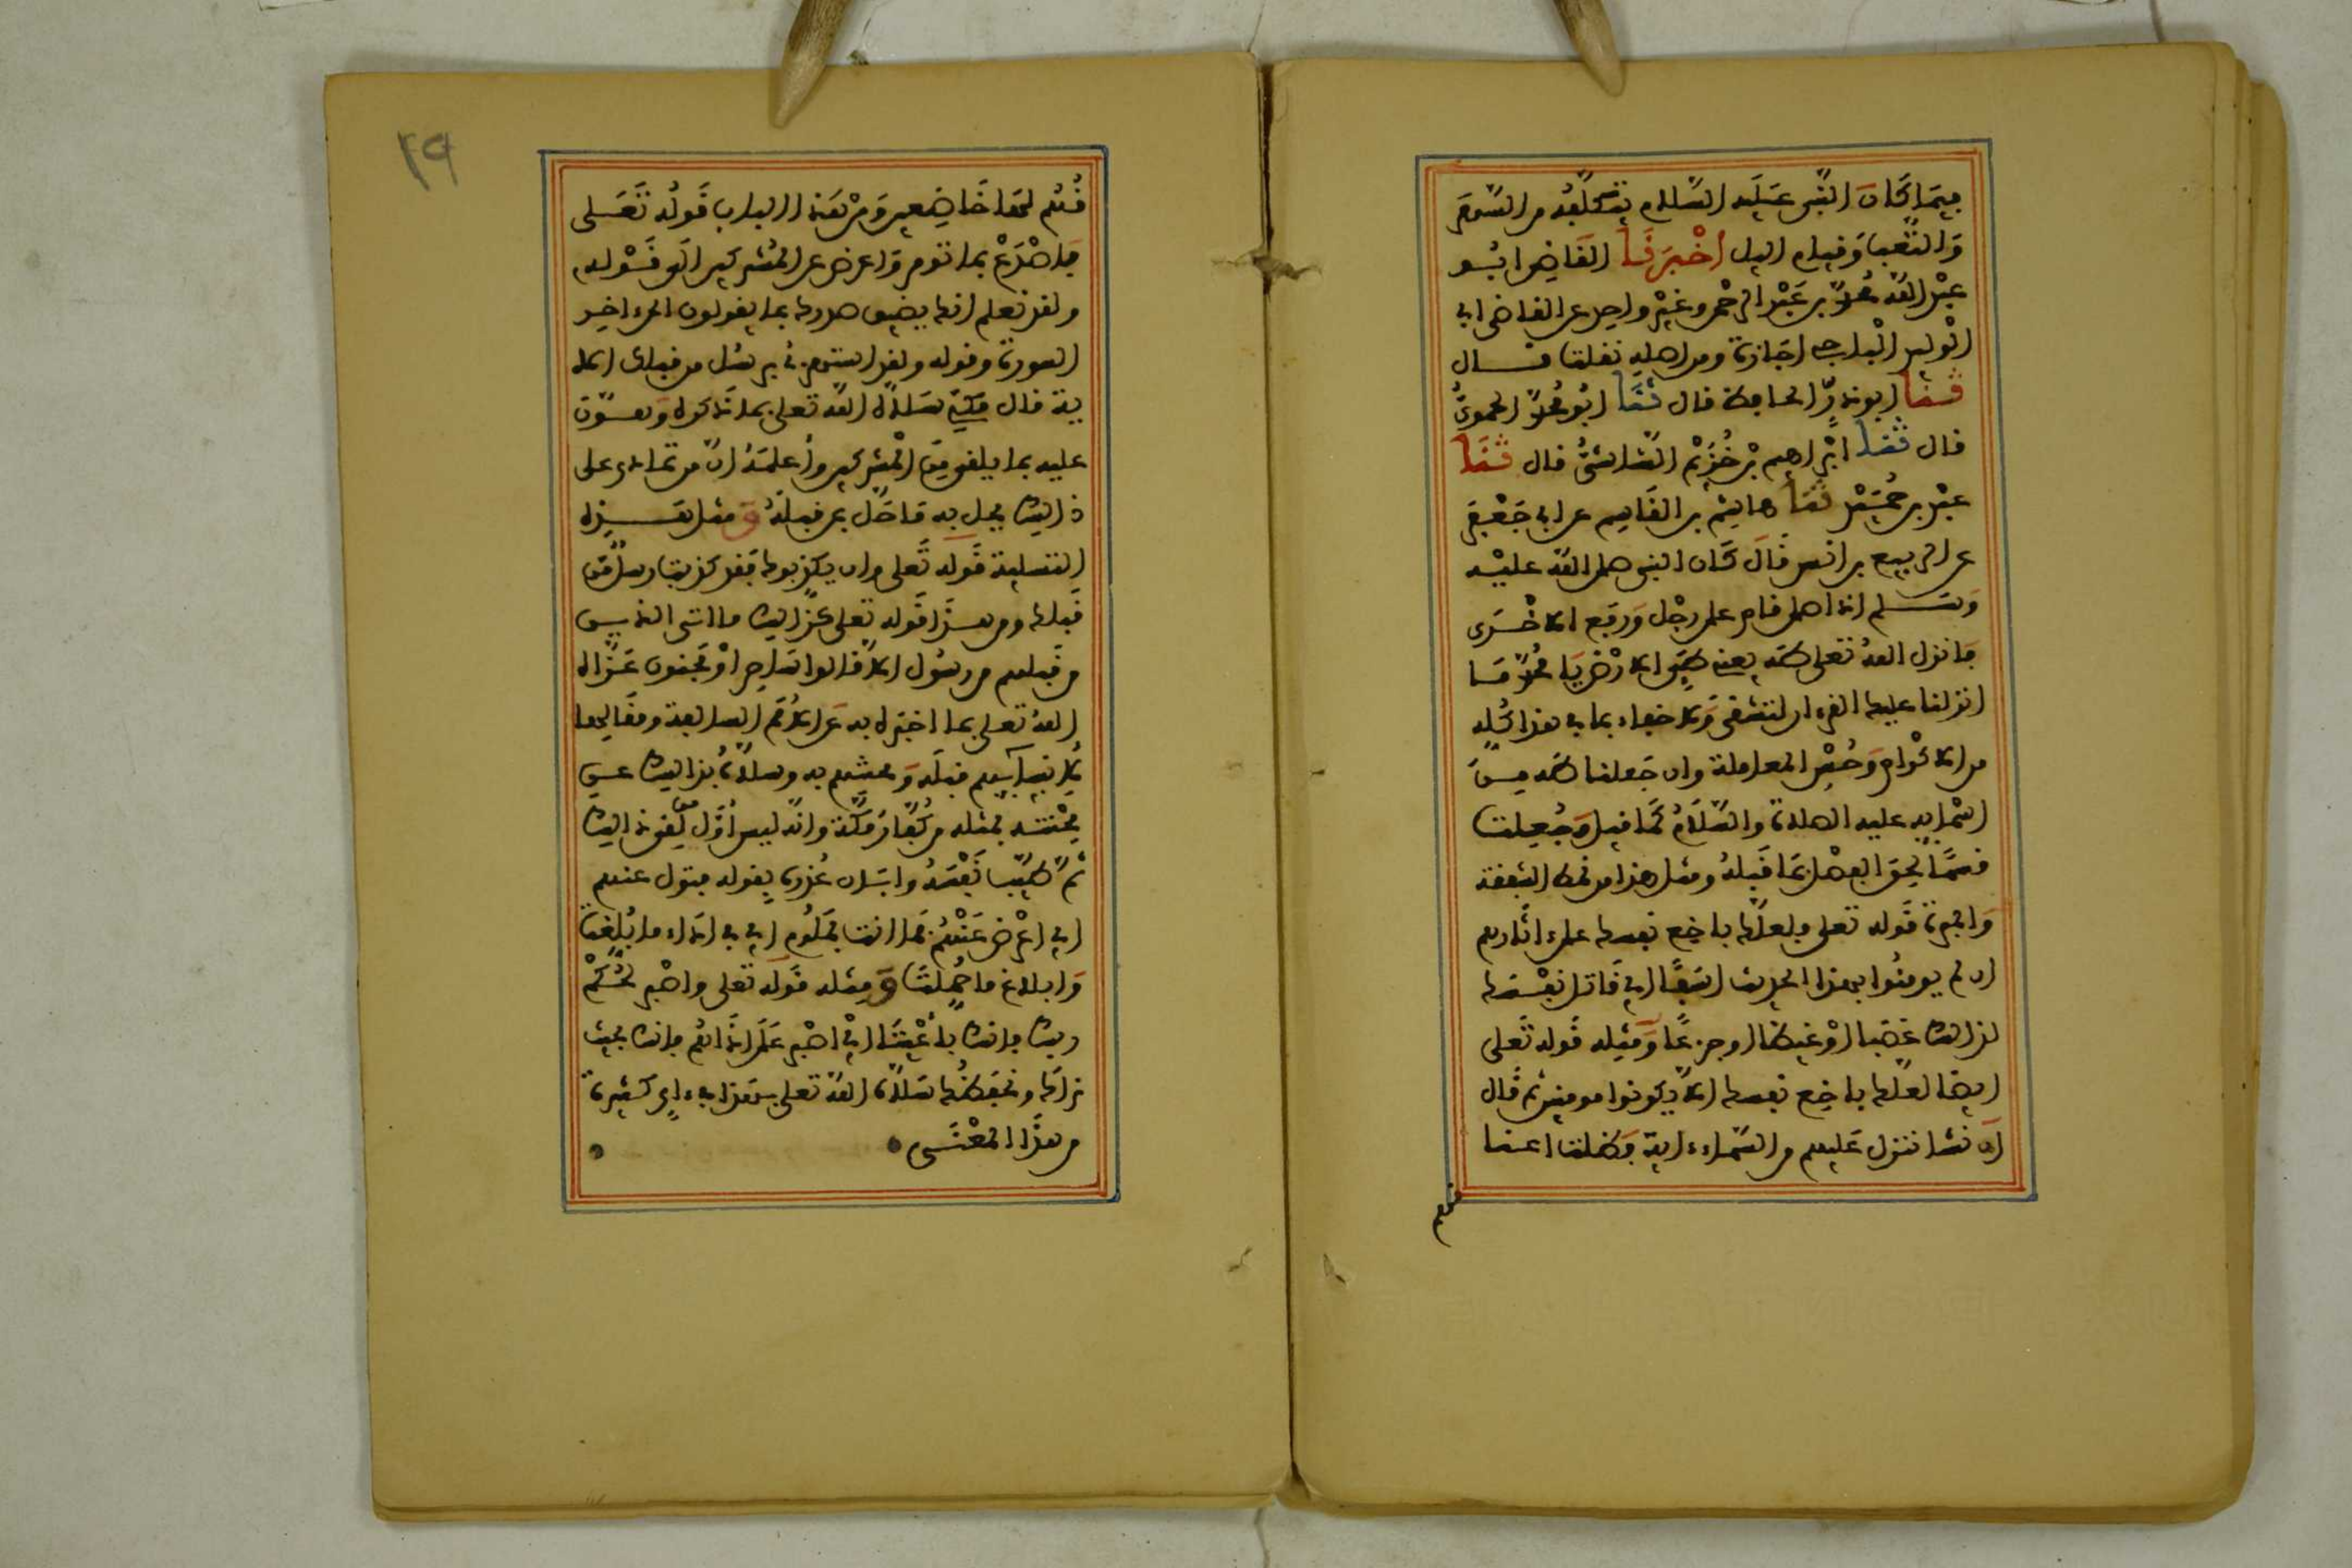 فيما كان النبي عليه السلام يتكلفه من السهر
والتعب وقيام اليل أخبرنا القاضي ابو
عبد الله محمد بن عبد الرحمن وغير واحد عن القاضي ابي
الوليد الباجي اجازة ومن اصله نقلت قال
ثنا ابو ذر الحافظ قال ثنا ابو محمد الحموي
قال ثنا ابراهيم بن خزيم الشاشي قال ثنا
عبد بن حميد ثنا هاشم بن القاسم عن ابي جعفر
عن الربيع بن انس قال كان النبي صلى الله عليه
وسلم اذا صلى قام على رجل ورفع الاخرى
فانزل الله تعلى طه يعني طإ الارض يا محمد ما
انزلنا عليك القرءان لتشقى ولا خفاء بما في هذا كله
من الاكرام وحسن المعاملة وان جعلنا طه من
اسمائه عليه الصلاة والسلام كما قيل وجعلت
قسما لحق الفصل بما قبله ومثل هذا من نمط الشفقة
والمبرة قوله تعلى فلعلك باخع نفسك على ءاثارهم
ان لم يومنوا بهذا الحديث اسفا اي قاتل نفسك
لذلك غضبا او غيظا او جزعا ومثله قوله تعلى
ايضا لعلك باخع نفسك الا يكونوا مومنين ثم قال
ان نشا ننزل عليهم من السماء ءاية فظلت اعنا
قهم
٢٩
قهم لها خاضعين ومن هذا الباب قوله تعلى
فاصدع بما تومر واعرض عن المشركين الى قوله
ولقد نعلم انك يضيق صدرك بما يقولون الى ءاخر
السورة وقوله ولقد استهزئ برسل من قبلك الا
ية قال مكي سلاه الله تعلى بما ذكره وهون
عليه ما يلقى من المشركين وأعلمه ان من تمادى على
ذلك يحل به ما حل بمن قبله ومثل هذه
التسلية قوله تعلى وان يكذبوك فقد كذبت رسل من
قبلك ومن هذا قوله تعلى كذلك ما اتى الذين
من قبلهم من رسول الا قالوا ساحر او مجنون عزاه
الله تعلى بما اخبره به عن الامم السالفة ومقالها
لانبيائهم قبله ومحنتهم به وسلاه بذلك عن
محنته بمثله من كفار مكة وانه ليس اول من لقي ذلك
ثم طيب نفسه وابان عذره بقوله فتول عنهم
اي اعرض عنهم فما انت بملوم اي في اداء ما بلغت
وابلاغ ما حملت ومثله قوله تعلى واصبر لحكم
ربك فانك بأعيننا اي اصبر على اذاهم فانك بحيث
نراك ونحفظك سلاه الله تعلى بهذا في ءاي كثيرة
من هذا المعنى